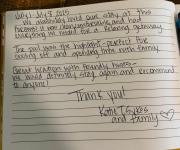 July 3, 2015
We absolutely loved our stay at this
and had
everything we needed for a relaxing getaway.
The pool was the highlight - perfect for
cooling off and spending time with family.
Great location with friendly hosts -
we would definitely stay again and recommend
to anyone!
Thank you!
Katie
and family